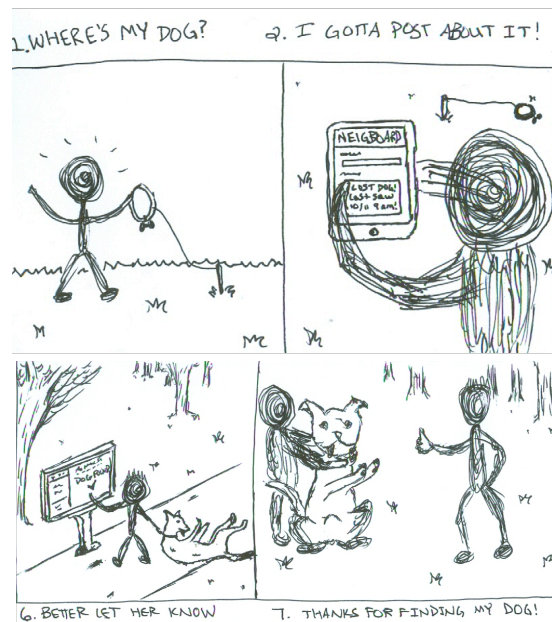 1. WHERE'S MY DOG?
2. I GOTTA POST ABOUT IT!
NEIGBOARD
LOST DOG!
Last saw
10/11 9am!
DOG FOUND
6. BETTER LET HER KNOW
7. THANKS FOR FINDING MY DOG!